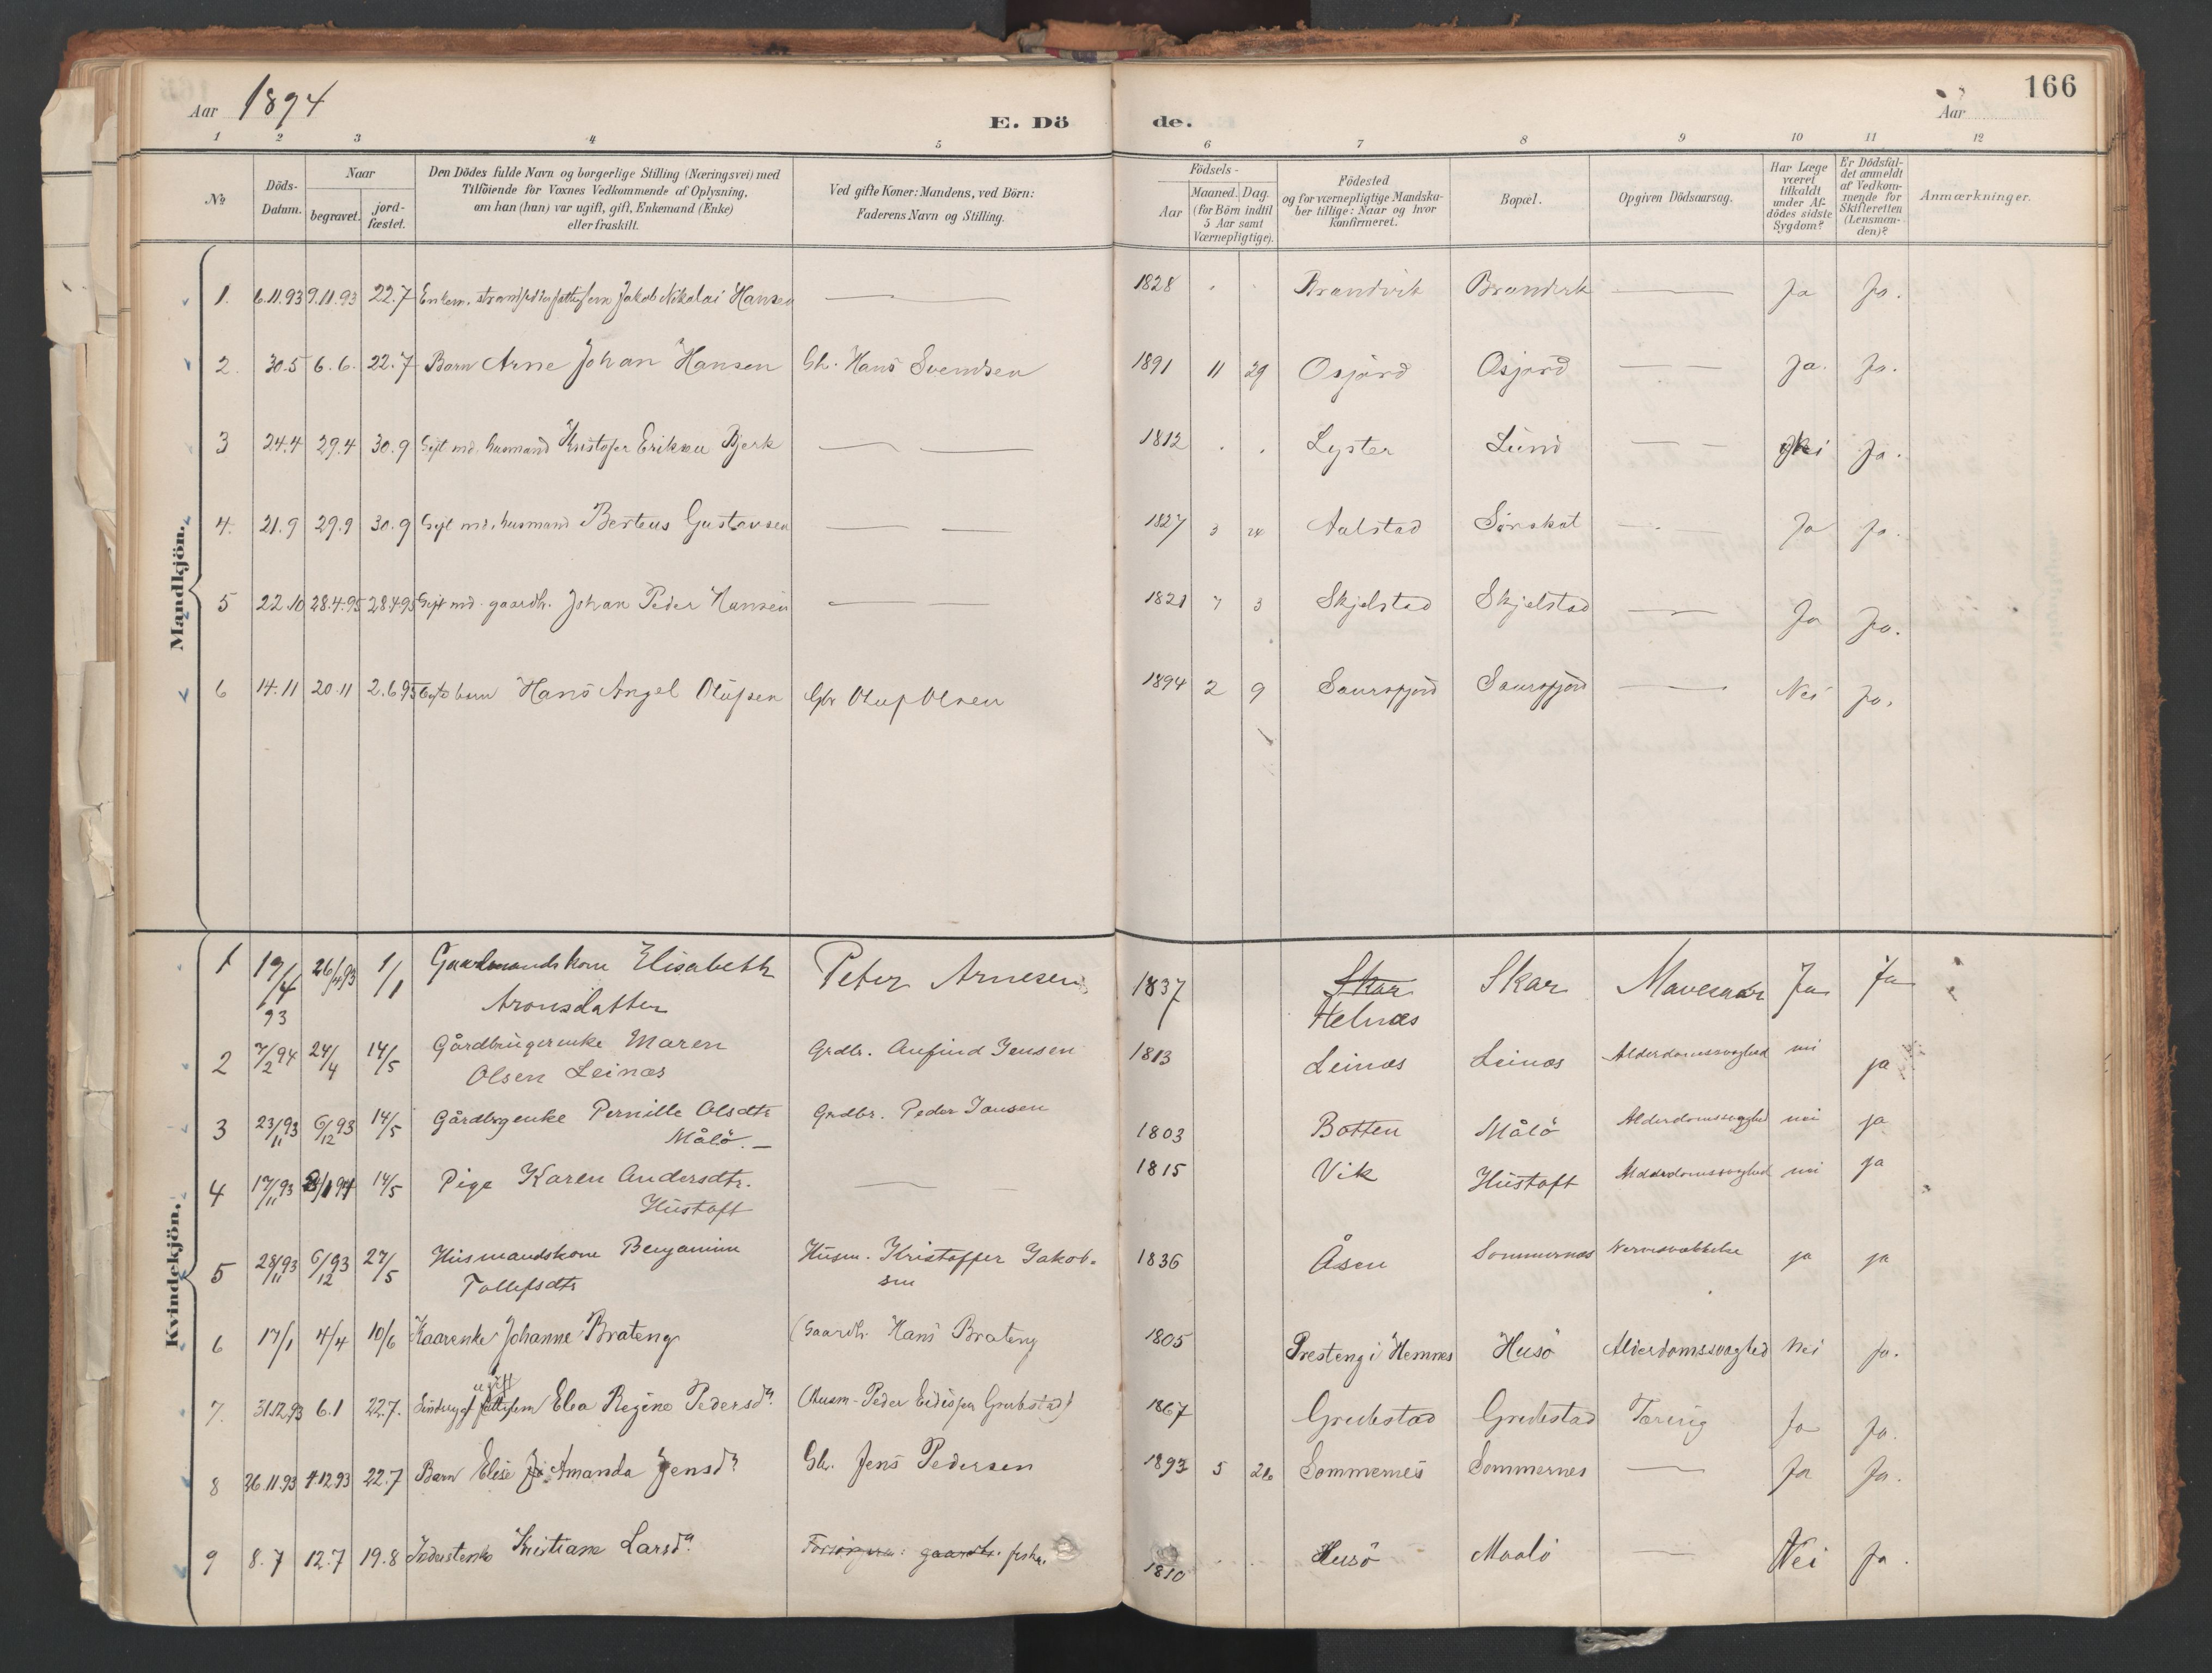 166
Aar 1894
E. Dö de.
Aar
1 2 3 4 5 6 7 8 9 10 11 12
№
Döds-Datum.
Naar
begravet.
jord-fæstet.
Den Dödes fulde Navn og borgerlige Stilling (Næringsvei) med
Tilföiende for Voxnes Vedkommende af Oplysning,
om han (hun) var ugift, gift, Enkemand (Enke)
eller fraskilt.
Ved gifte Koner: Mandens, ved Börn:
Faderens Navn og Stilling.
Födsels-
Aar
Maaned. Dag.
(for Börn indtil
5 Aar samt
Værnepligtige).
Födested
og for værnepligtige Mandska-
ber tillige: Naar og hvor
konfirmeret.
Bopæl.
Opgiven Dödsaarsag.
Har Læge
været
tilkaldt
under Af-
dödes sidste
Sygdom?
Er Dödsfal-
det anmeldt
af Vedkom-
mende for
Skifteretten
(Lensman-
den)?
Anmærkninger.
Mandkjön.
1. 6.11.93 9.11.93 22.7 Enkem. Jakob Nikolai Hansen 1828 Brandvik Brandvik Ja Ja.
2. 30.5 6.6. 22.7 Barn Arne Johan Hansen Gb. Hans Svendsen 1891 11 29 Osjord Osjord Ja. Ja.
3 24.4 29.4 30.9 Gift md. husmand Kristofer Bjerk 1812 Lyster Lund Ja.
4. 21.9 29.9 30.9 Gift md. husmand Berteus Gustavsen 1827 3 24 Aalstad Ja Ja.
5 22.10 28.4.95 28.4.95 Gift md. gaardb. Johan Peder Hansen 1821 7 3 Skjelstad Skjelstad Ja Ja.
6 14.11 20.11 2.6.95 barn Hans Angel Olufsen Gbr Oluf Olsen 1894 2 9 Saursfjord Saursfjord Nei Ja.
Kvindekjön.
1 19/4 93 26/4 93 1/1 Gaardmandskone Elisabeth Peter Arnesen 1837 Skar Skar Mavesaar Ja Ja
Aronsdatter Helnæs
2 7/2 94 24/4 14/5 Gårdbrugerenke Maren Grdbr. Anfind Jensen 1813 Leinæs Leinæs Alderdomssvaghed nei ja
Olsen Leinæs
3 23/11 93 6/12 93 14/5 Gårdbrgenke Pernille Olsdtr Grdbr. Peder Jansen 1803 Botten Målö Alderdomssvaghed nei ja
Målö.
4 17/11 93 14/5 Pige Karen Andersdtr. 1815 Vik Hustoft Alderdomssvaghed nei ja
Hustoft
5 28/11 93 6/12 93 27/5 Husmandskone Benjamine Husm. Kristoffer Jakob- 1836 Åsen Sommernæs Nervesvækkelse ja ja
Tollefsdtr sen
6 17/1 4/4 10/6 Kaarenke Johanne Brateng Gaardb. Hans Brateng 1805 Presteng i Hemnes Husö Alderdomssvaghed Nei Ja.
ugift
7. 31.12.93 6.1 22.7. Elea Regine Pedersdr. (Husm. Peder Grubstad) 1867 Tæring Ja Ja.
8 26.11.93 4.12.93 22.7 Barn Elise Jo Amanda Jensdr. Gb. Jens Pedersen 1893 5 26 Sommernes Sommernes Ja Ja.
9 8.7 12.7 19.8 Inderstenke Kristiane Larsdr. gaardb. fisker. 1810 Husö Maalö Nei Ja.